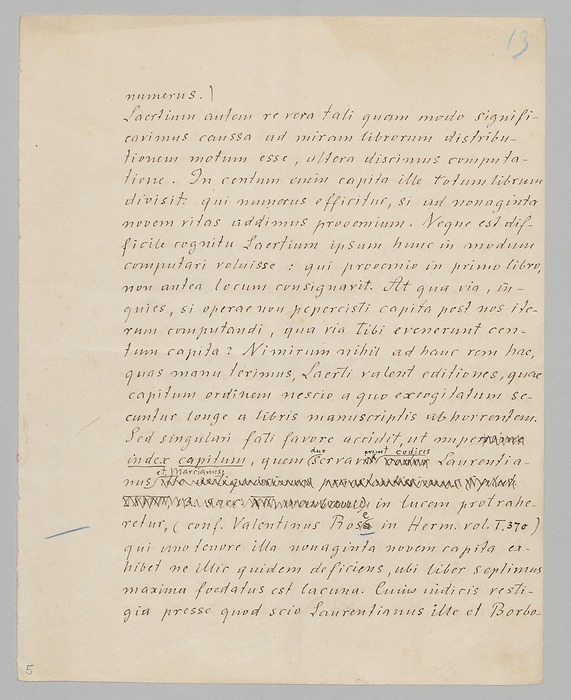 13
numerus.)
Laertium autem re vera tali quam modo signifi-
cavimus caussa ad miram librorum distribu-
tionem motum esse, altera discimus computa-
tione. In centum enim capita ille totum librum
divisit: qui numerus efficitur, si ad nonaginta
novem vitas addimus prooemium. Neque est dif-
ficile cognitu Laertium ipsum hunc in modum
computari voluisse: qui prooemio in primo libro,
non antea locum consignavit. At qua via, in-
quies, si operae non pepercisti capita post nos ite-
rum computandi, qua via tibi evenerunt cen-
tum capita? Nimirum nihil ad hanc rem hae,
quas manu terimus, Laerti valent editiones, quae
capitum ordinem nescio a quo excogitatum se-
cuntur longe a libris manuscriptis abhorrentem.
Sed singulari fati favore accidit, ut nuper
index capitum, quem duo servarunt codicis Laurentia-
nus et Marcianus
in lucem protrahe-
retur, (conf. Valentinus Rose in Herm. vol. I. 370)
qui uno tenore illa nonaginta novem capita ex-
hibet ne illic quidem deficiens, ubi liber septimus
maxima foedatus est lacuna. Cuius indicis vesti-
gia presse quod scio Laurentianus ille et Borbo-
5